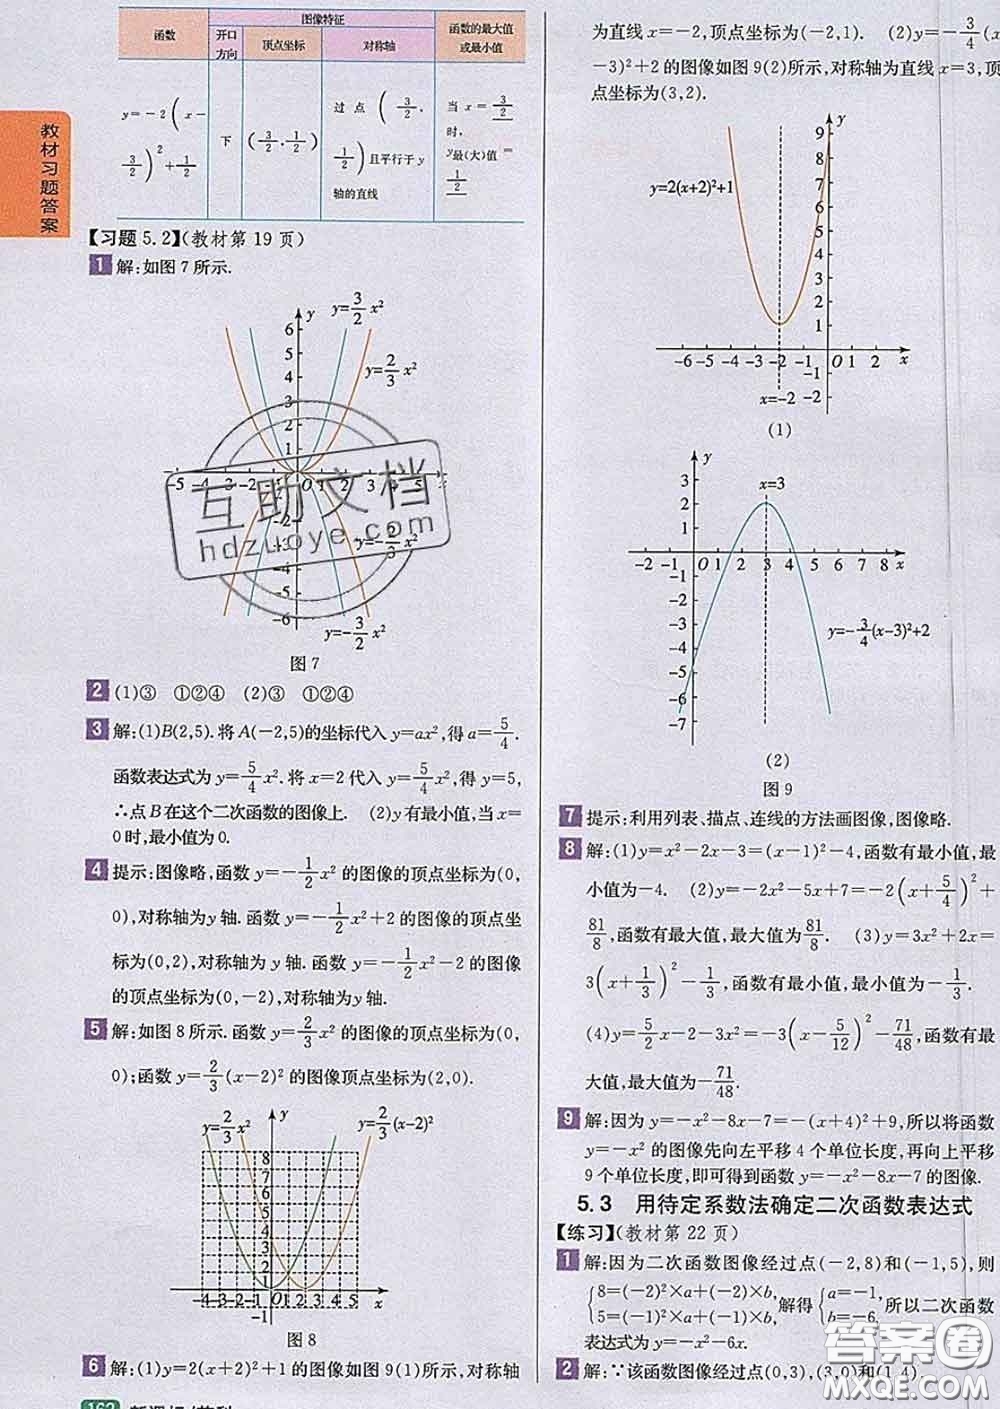 函数 图像特征 函数的最大值或最小值
开口方向 顶点坐标 对称轴
y=-2(x-3/2)²+1/2 下 (3/2,1/2) 过点(3/2,1/2)且平行于y轴的直线 当x=3/2时,y最(大)值=1/2
教材习题答案
【习题5.2】(教材第19页)
1 解:如图7所示.
y=3/2x²
y=2/3x²
y=-2/3x²
y=-3/2x²
图7
2 (1)③ ①②④ (2)③ ①②④
3 解:(1)B(2,5).将A(-2,5)的坐标代入y=ax²,得a=5/4.
函数表达式为y=5/4x².将x=2代入y=5/4x²,得y=5,
∴点B在这个二次函数的图像上. (2)y有最小值,当x=
0时,最小值为0.
4 提示:图像略,函数y=-1/2x²的图像的顶点坐标为(0,
0),对称轴为y轴.函数y=-1/2x²+2的图像的顶点坐
标为(0,2),对称轴为y轴.函数y=-1/2x²-2的图像
的顶点坐标为(0,-2),对称轴为y轴.
5 解:如图8所示.函数y=2/3x²的图像的顶点坐标为(0,
0);函数y=2/3(x-2)²的图像顶点坐标为(2,0).
y=2/3x²
y=2/3(x-2)²
图8
6 解:(1)y=2(x+2)²+1的图像如图9(1)所示,对称轴
为直线x=-2,顶点坐标为(-2,1). (2)y=-3/4(x
-3)²+2的图像如图9(2)所示,对称轴为直线x=3,顶
点坐标为(3,2).
y=2(x+2)²+1
x=-2
(1)
x=3
y=-3/4(x-3)²+2
(2)
图9
7 提示:利用列表、描点、连线的方法画图像,图像略.
8 解:(1)y=x²-2x-3=(x-1)²-4,函数有最小值,最
小值为-4. (2)y=-2x²-5x+7=-2(x+5/4)²+
81/8,函数有最大值,最大值为81/8. (3)y=3x²+2x=
3(x+1/3)²-1/3,函数有最小值,最小值为-1/3.
(4)y=5/2x-2-3x²=-3(x-5/12)²-71/48,函数有最
大值,最大值为-71/48.
9 解:因为y=-x²-8x-7=-(x+4)²+9,所以将函数
y=-x²的图像先向左平移4个单位长度,再向上平移
9个单位长度,即可得到函数y=-x²-8x-7的图像.
5.3 用待定系数法确定二次函数表达式
【练习】(教材第22页)
1 解:因为二次函数图像经过点(-2,8)和(-1,5),则
{8=(-2)²×a+(-2)×b, 5=(-1)²×a+(-1)×b, 解得{a=-1, b=-6. 所以二次函数
表达式为y=-x²-6x.
2 解:∵该函数图像经过点(0,3),(3,0)和(1,4).
互助文档
hdzuoye.com
答案圈
MXQE.COM